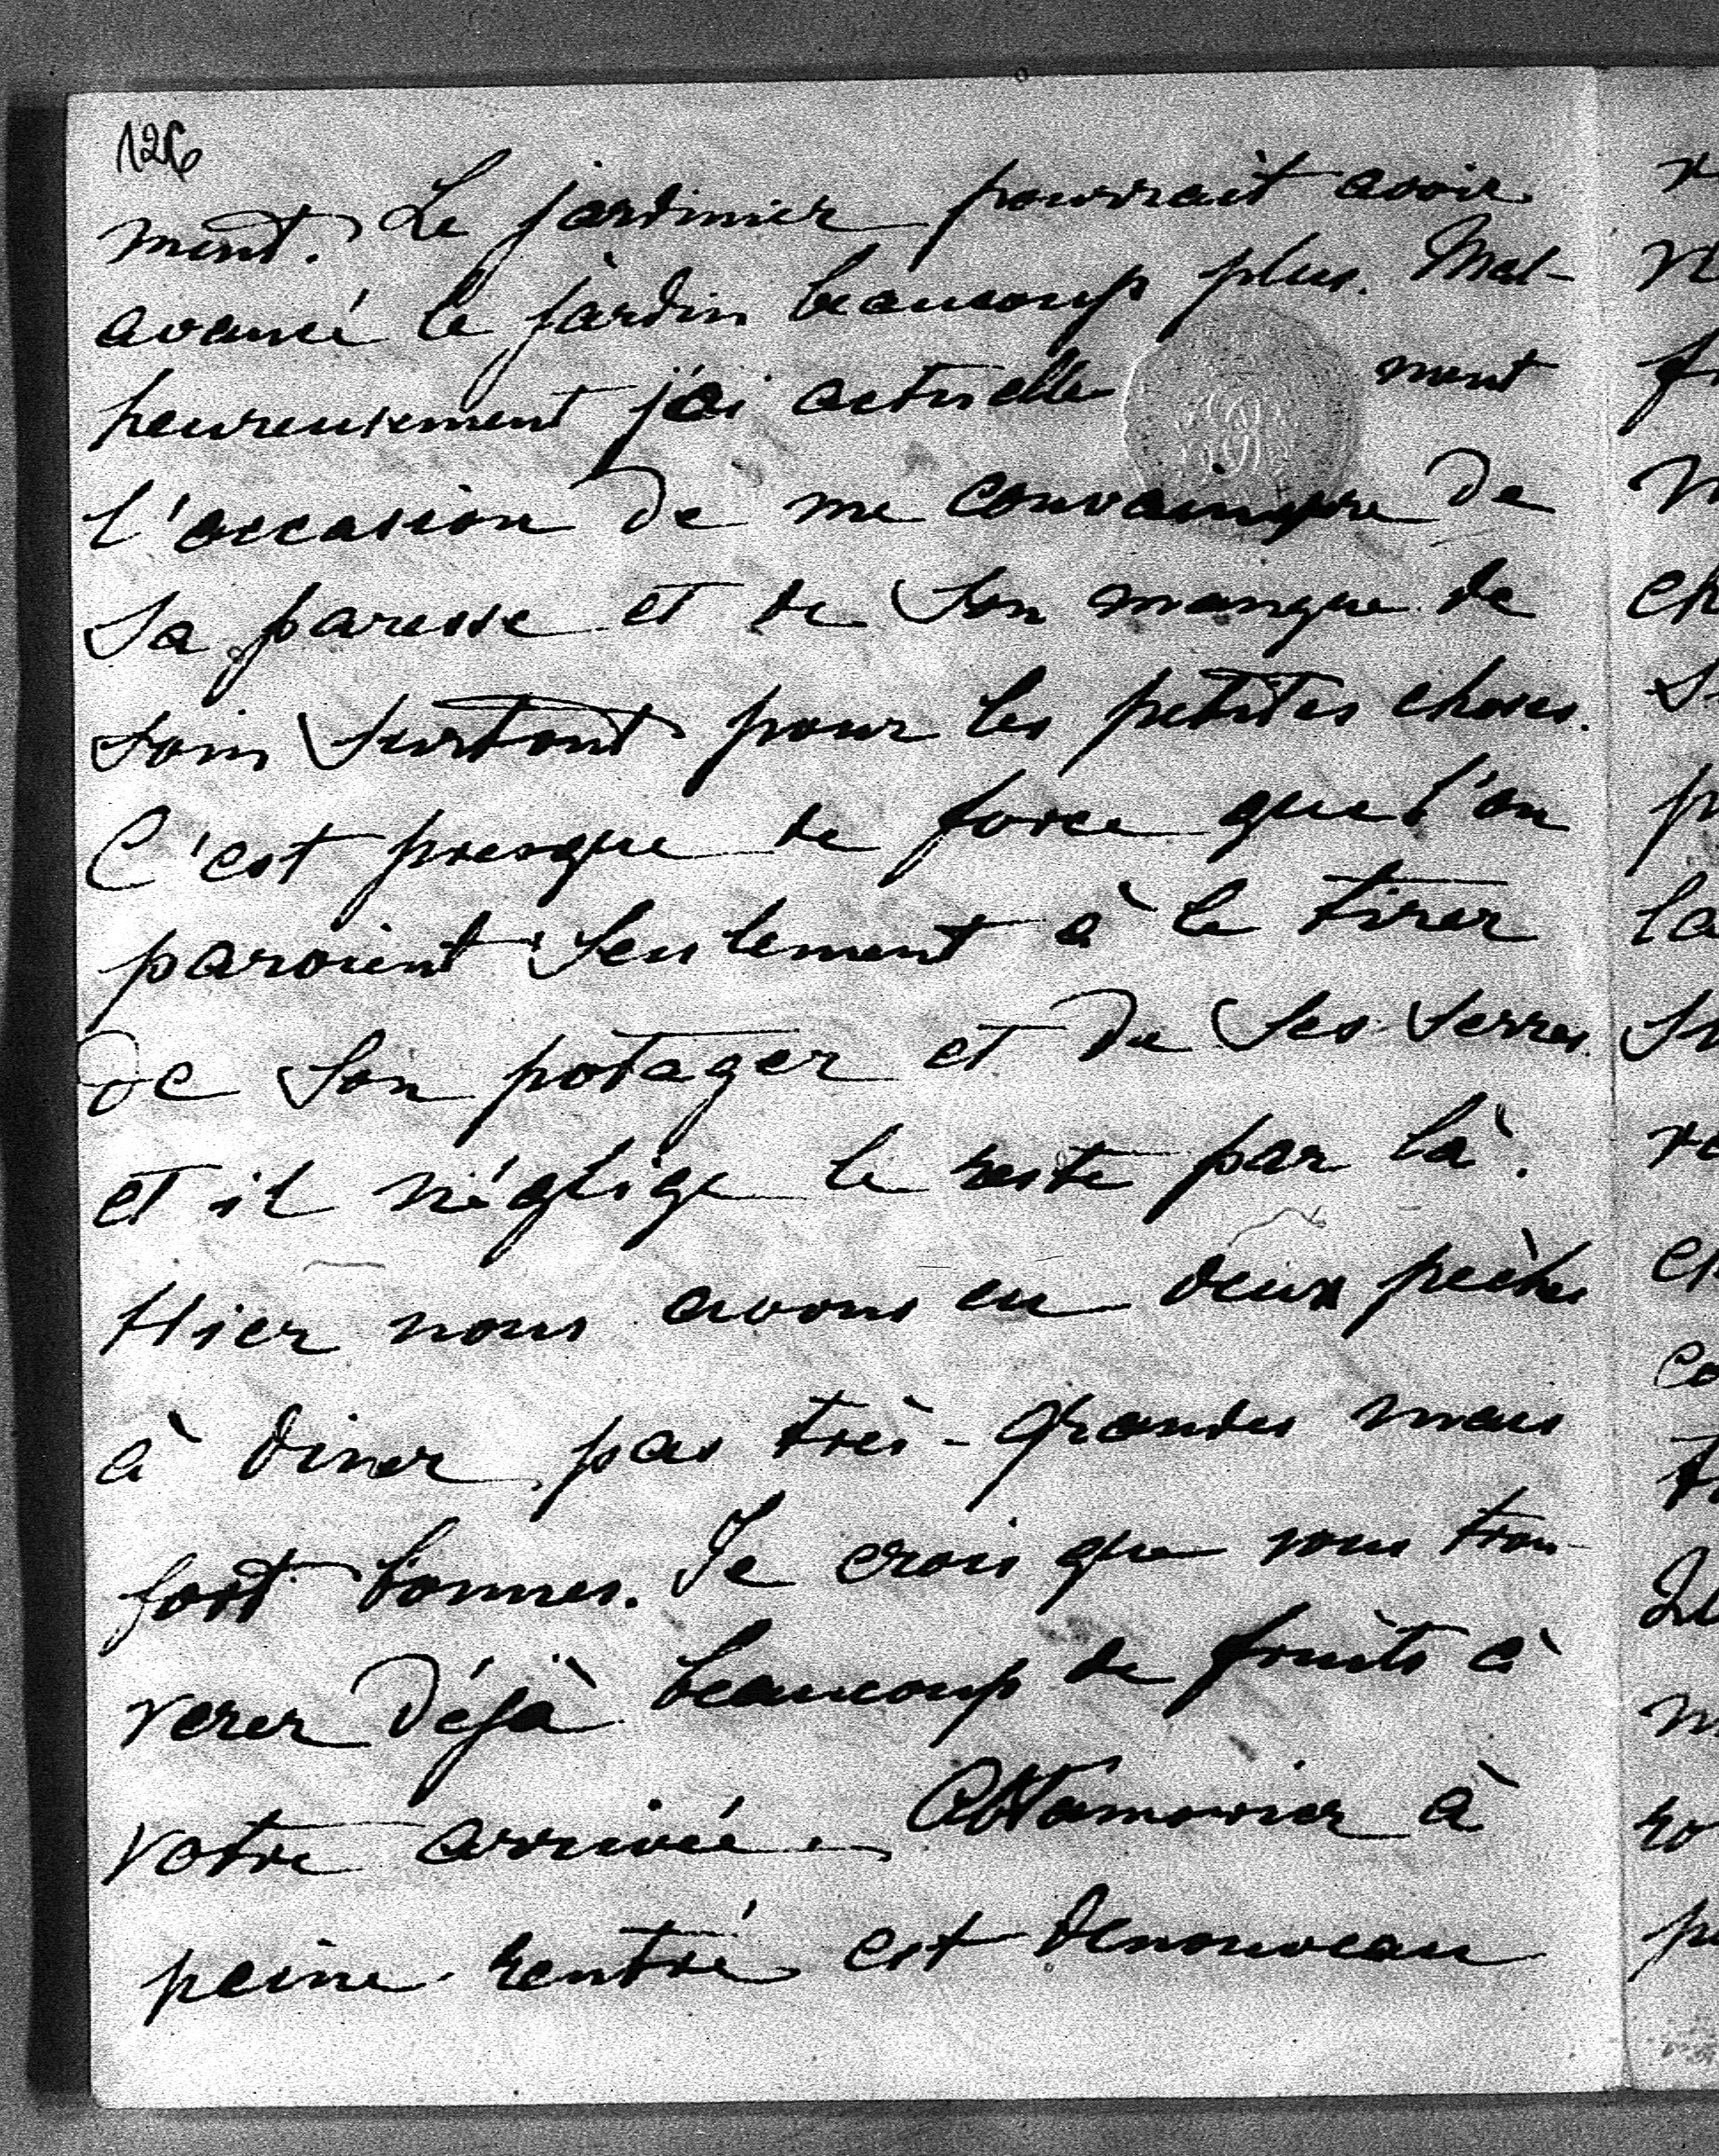 126
ment. Le jardinier pourrait avoir
avancé le jardin beaucoup plus. Mal-
heureusement j'ai actuelle ment
l'occasion de me convaincre de
sa paresse et de son manque de
soin surtout pour les petites choses.
C'est presque de force que l'on
parvient seulement à le tirer
de son potager et de ses serres
et il néglige le reste par là.
Hier nous avons eu deux pèches
à diner, pas très-grandes mais
fort bonnes. Je crois que vous trou-
verez déjà beaucoup de fruits à
votre arrivée à
peine rentré est denouveau